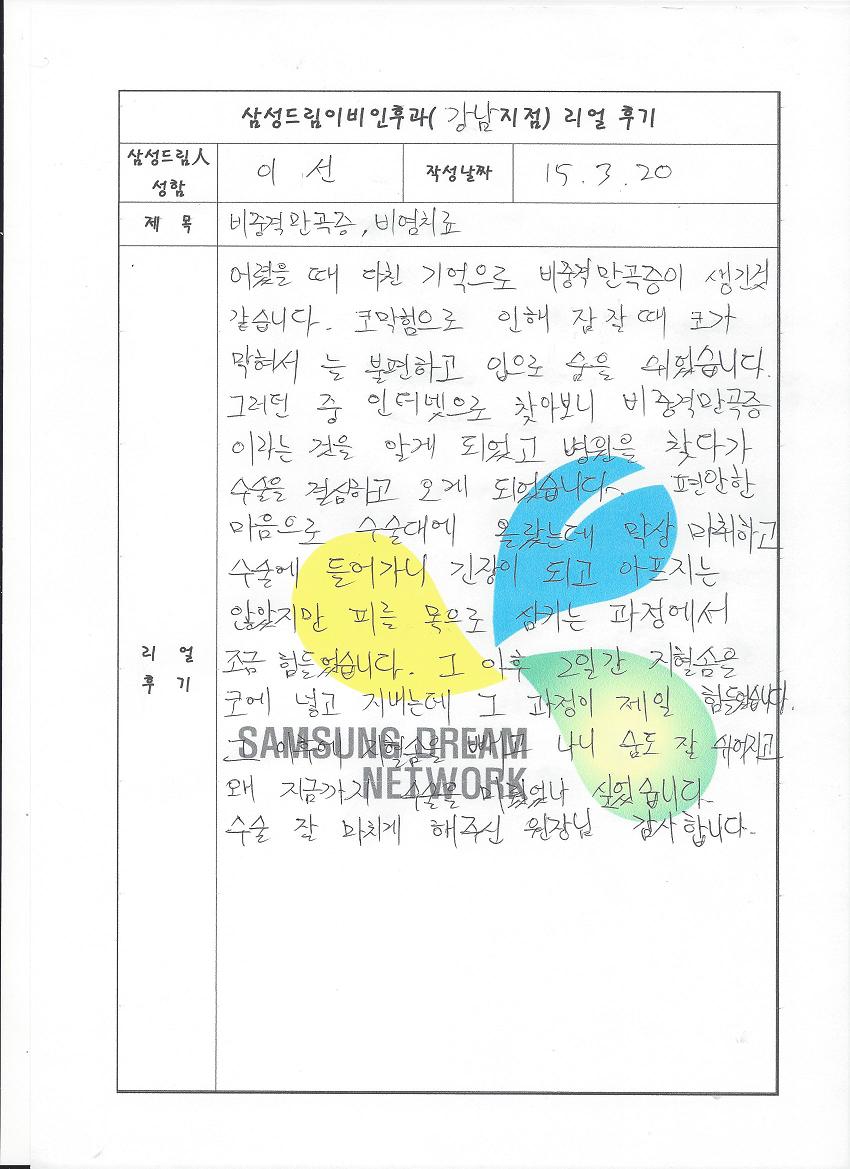 삼성드림이비인후과(강남지점) 리얼 후기
삼성드림人 성함 이 선 작성날짜 15.3.20
제 목 비중격만곡증, 비염치료
리 얼 후 기
어렸을 때 다친 기억으로 비중격만곡증이 생긴것
같습니다. 코막힘으로 인해 잠잘때 코가
막혀서 늘 불편하고 입으로 숨을 쉬었습니다.
그러던 중 인터넷으로 찾아보니 비중격만곡증
이라는 것을 알게 되었고 병원을 찾다가
수술을 결심하고 오게 되었습니다. 편안한
마음으로 수술대에 올랐는데 막상 마취하고
수술에 들어가니 긴장이 되고 아프지는
않았지만 피를 목으로 삼키는 과정에서
조금 힘들었습니다. 그 이후 2일간 지혈솜을
코에 넣고 지내는데 그 과정이 제일 힘들었습니다.
그 이후에 지혈솜을 빼고 나니 숨도 잘 쉬어지고
왜 지금까지 수술을 미뤘었나 싶었습니다.
수술 잘 마치게 해주신 원장님 감사합니다.
SAMSUNG DREAM
NETWORK